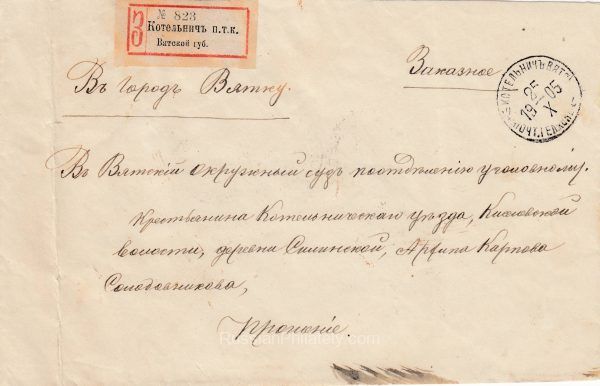 З
№ 823
Котельничъ п.т.к.
Вятской губ.
Заказное
КОТЕЛЬНИЧЪ ВЯТ.
25
1905
X
ПОЧТ.ТЕЛ.
Въ городъ Вятку.
Въ Вятскій окружный судъ по отдѣленію уголовному.
Крестьянина Котельническаго уѣзда,
волости, деревни Силинской, Архипа Карпова
Солодовникова,
Прошеніе.
RussianPhilately.com